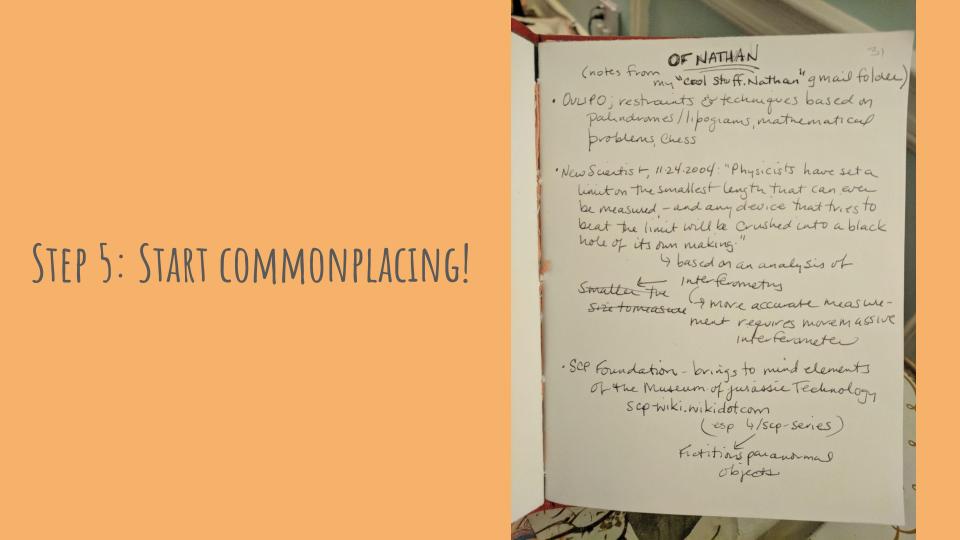 Step 5: Start commonplacing!
31
OF NATHAN
(notes from
my "cool stuff.Nathan" gmail folder)
• OULIPO; restraints & techniques based on
palindromes/lipograms, mathematical
problems, chess
• New Scientist, 11.24.2004: "Physicists have set a
limit on the smallest length that can ever
be measured – and any device that tries to
beat the limit will be crushed into a black
hole of its own making."
↳ based on an analysis of
interferometers
Smaller the
size to measure
↳ more accurate measure-
ment requires more massive
interferometer
• SCP Foundation – brings to mind elements
of the Museum of Jurassic Technology
scp-wiki.wikidot.com
(esp 4/scp-series)
Fictitious paranormal
objects